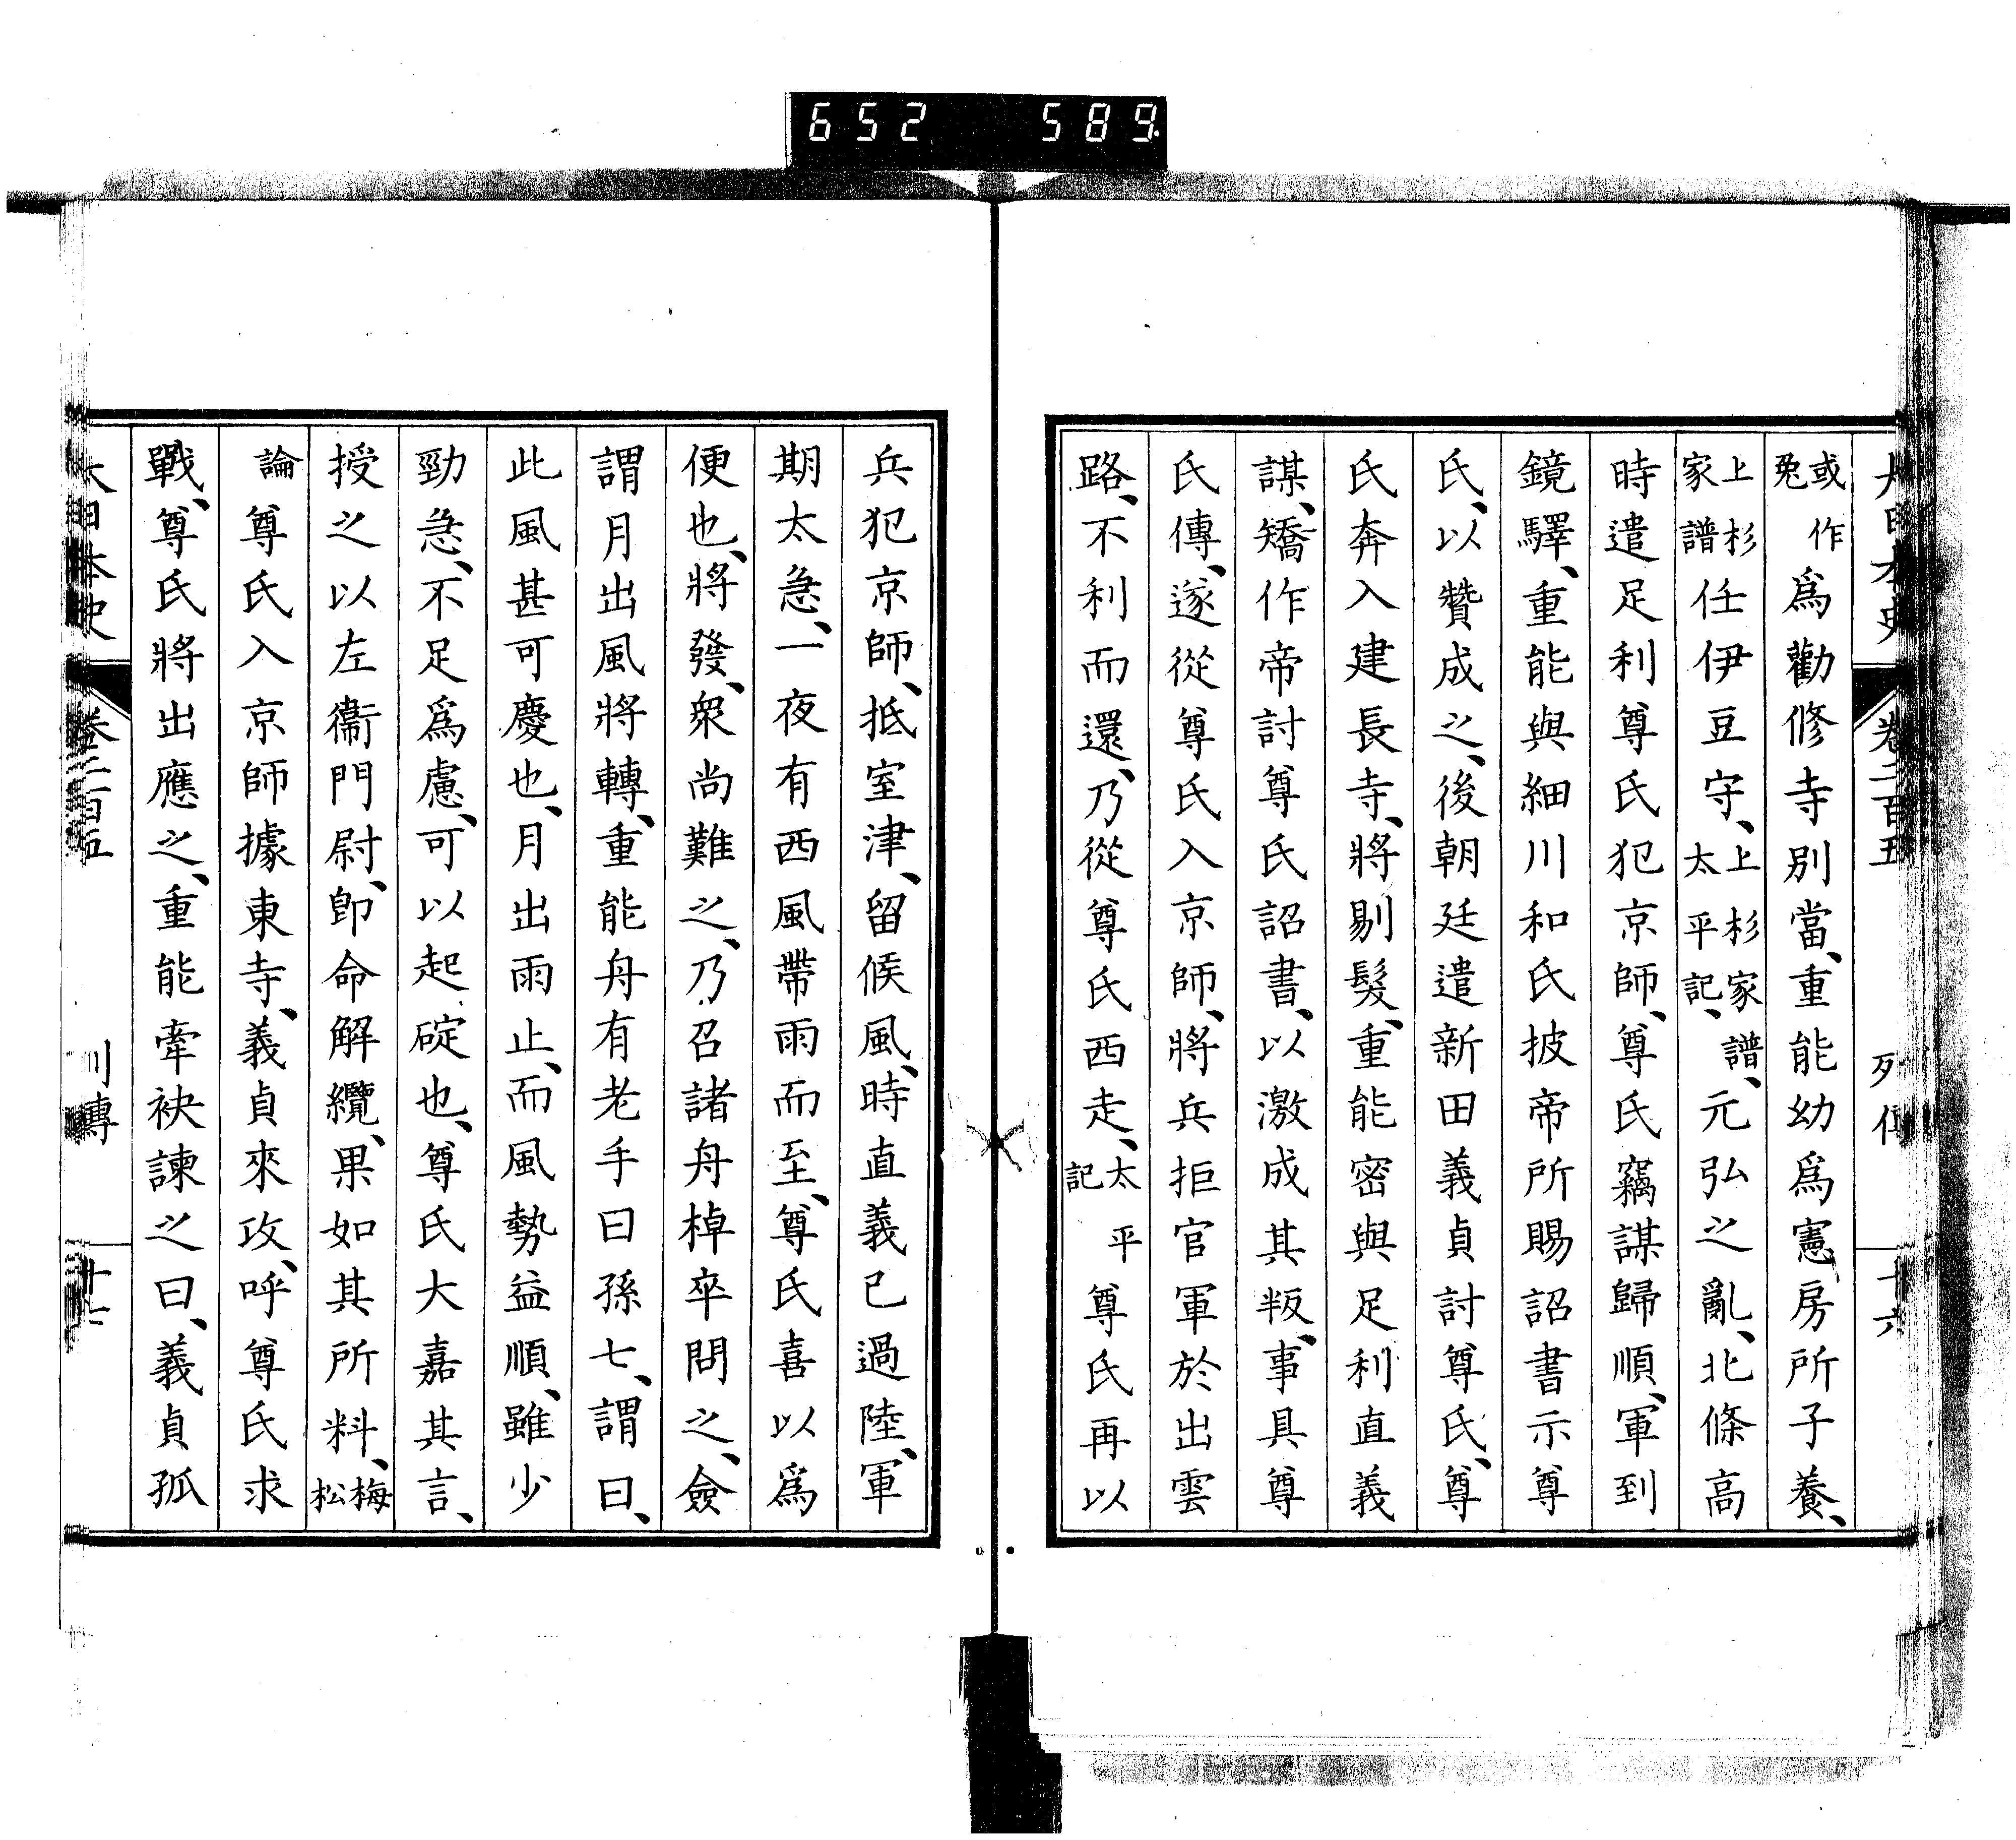 652 589
大日本史 卷二百五 列傳 十六
或作兎爲勸修寺別當、重能幼爲憲房所子養、
上杉家譜任伊豆守、上杉家譜、太平記、元弘之亂、北條高
時遣足利尊氏犯京師、尊氏竊謀歸順、軍到
鏡驛、重能與細川和氏披帝所賜詔書示尊
氏、以贊成之、後朝廷遣新田義貞討尊氏、尊
氏奔入建長寺、將剔髮、重能密與足利直義
謀、矯作帝討尊氏詔書、以激成其叛、事具尊
氏傳、遂從尊氏入京師、將兵拒官軍於出雲
路、不利而還、乃從尊氏西走、太平記尊氏再以
兵犯京師、抵室津、留候風、時直義已過陸、軍
期太急、一夜有西風帶雨而至、尊氏喜以爲
便也、將發、衆尚難之、乃召諸舟棹卒問之、僉
謂月出風將轉、重能舟有老手曰孫七、謂曰、
此風甚可慶也、月出雨止、而風勢益順、雖少
勁急、不足爲慮、可以起碇也、尊氏大嘉其言、
授之以左衞門尉、卽命解纜、果如其所料、梅松
論尊氏入京師據東寺、義貞來攻、呼尊氏求
戰、尊氏將出應之、重能牽袂諫之曰、義貞孤
大日本史 卷二百五 列傳 十七